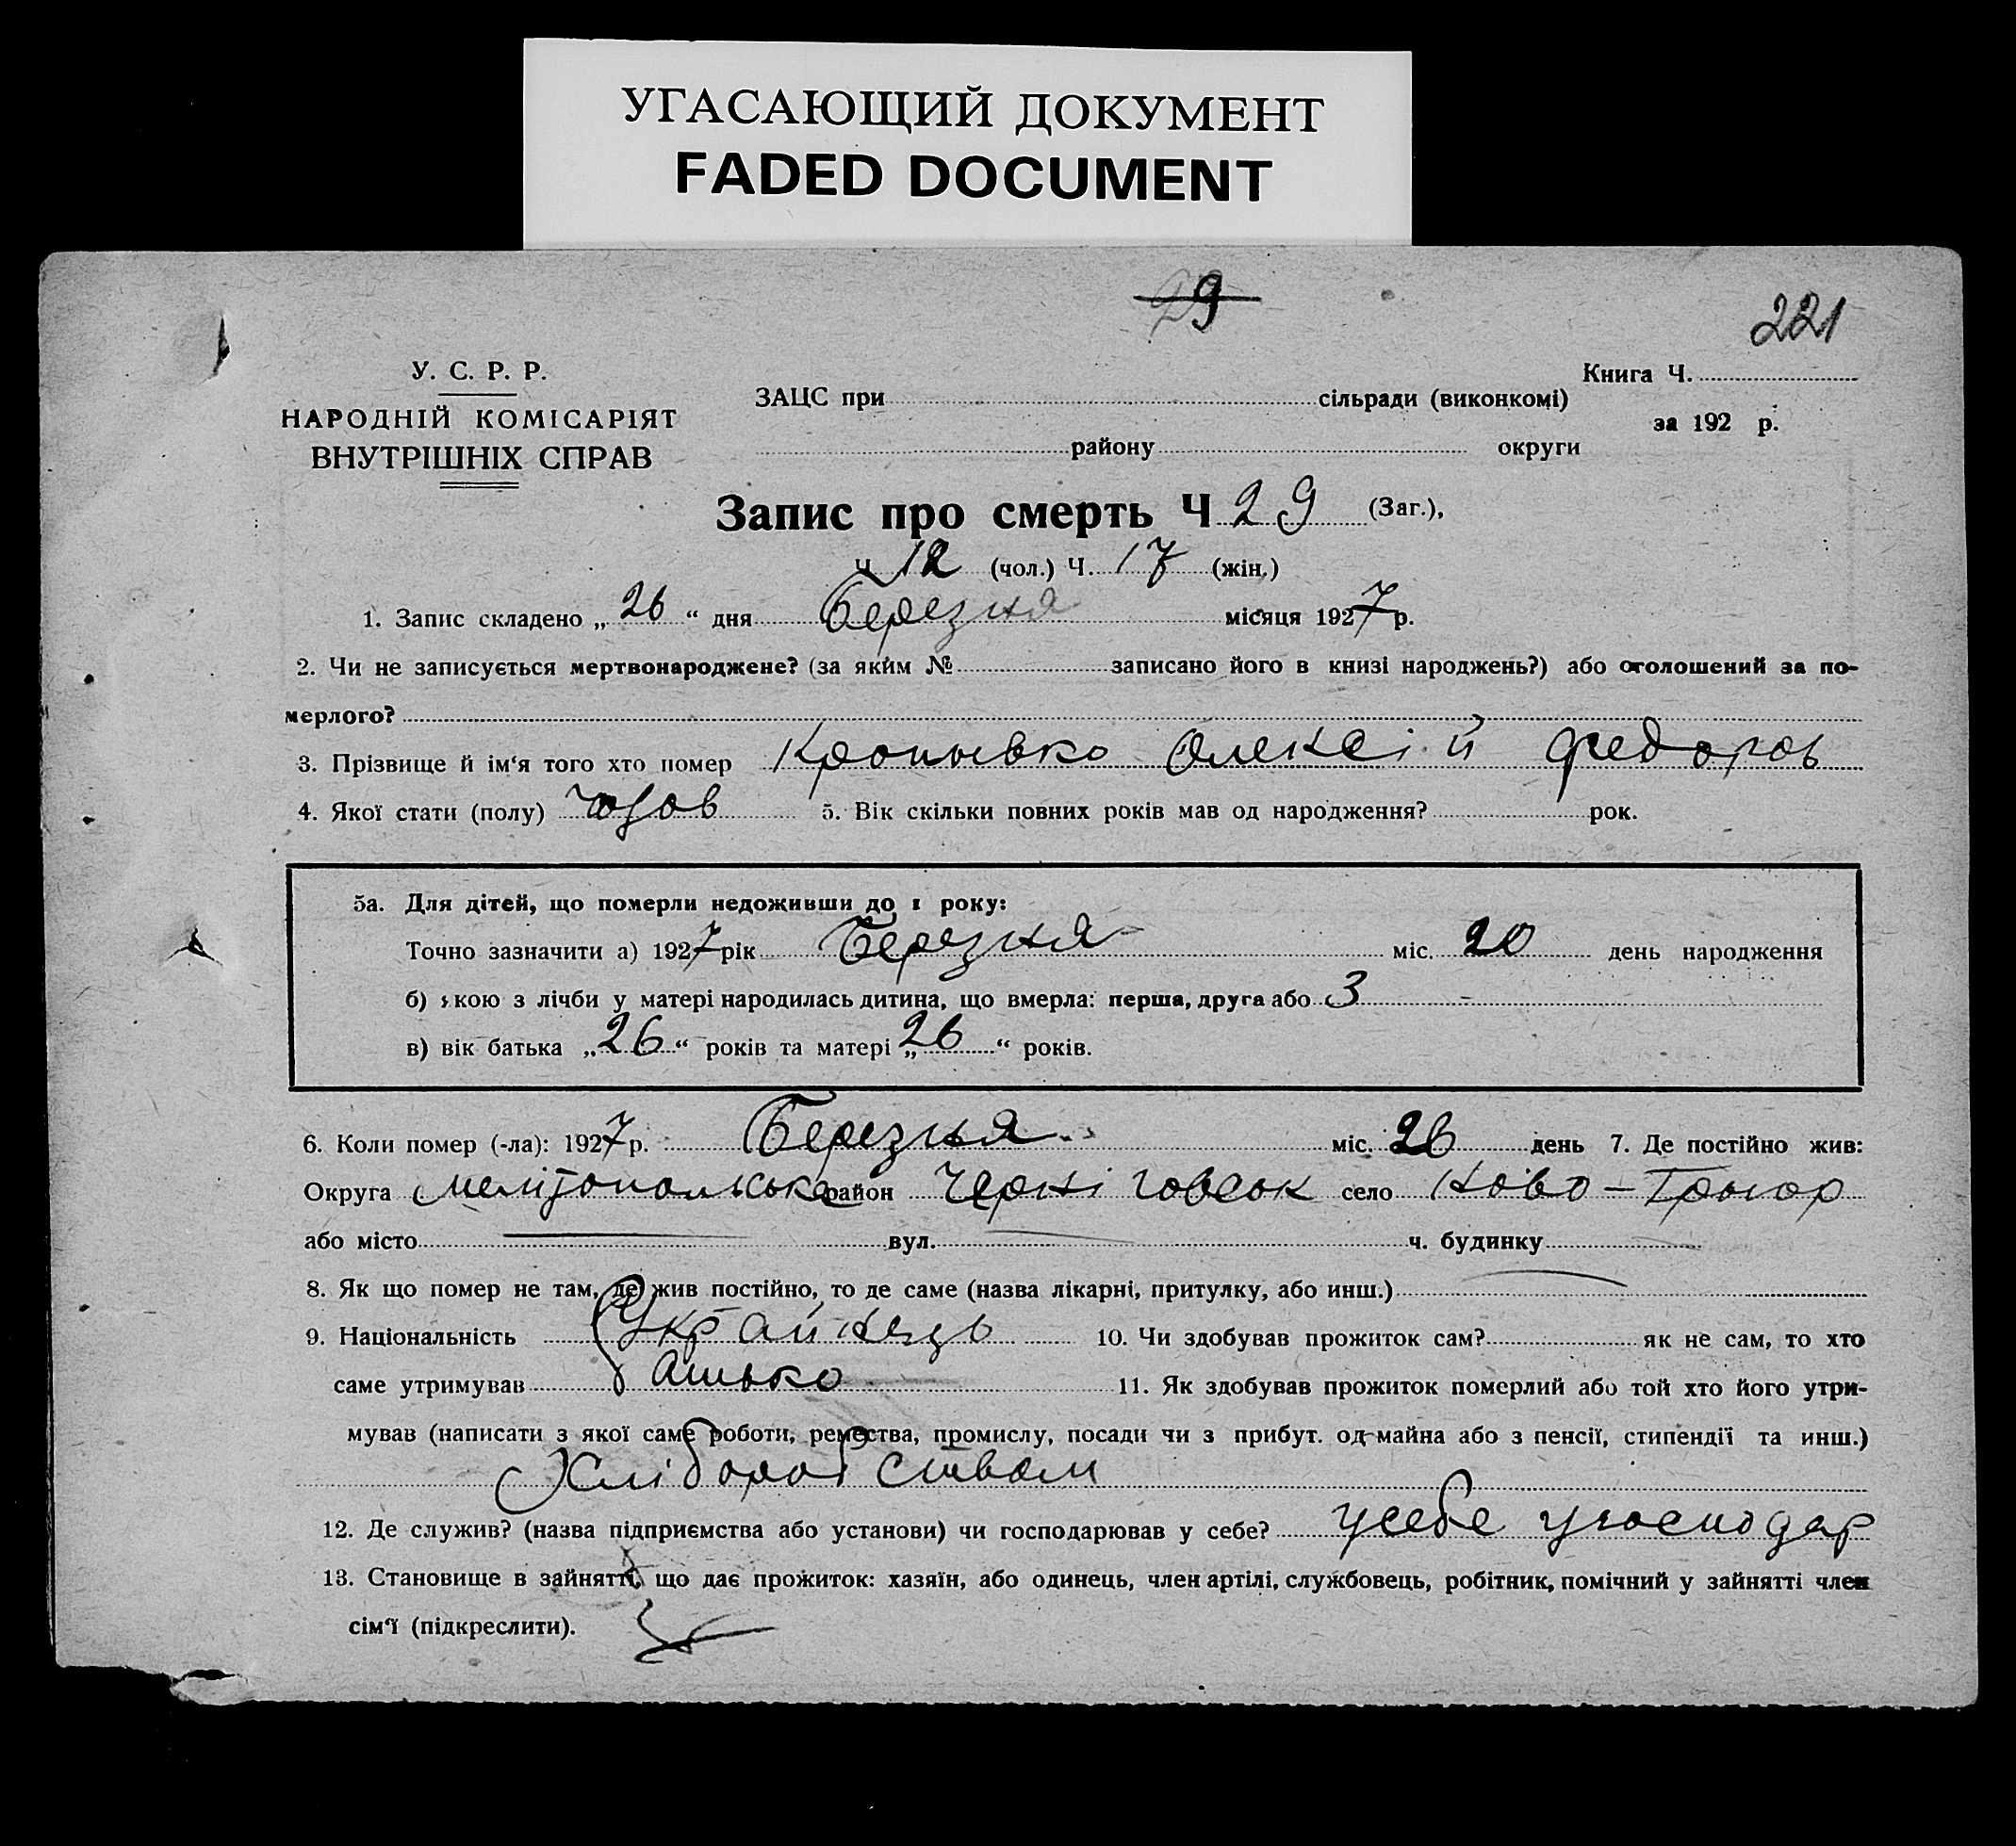 УГАСАЮЩИЙ ДОКУМЕНТ
FADED DOCUMENT
29
221
У. С. Р. Р.
НАРОДНІЙ КОМІСАРІЯТ
ВНУТРІШНІХ СПРАВ
ЗАЦС при сільради (виконкомі)
району округи
Книга Ч.
за 192 р.
Запис про смерть Ч 29 (Заг.),
Ч 12 (чол.) Ч. 17 (жін.)
1. Запис складено „ 26 “ дня Березня місяця 1927 р.
2. Чи не записується мертвонароджене? (за яким № записано його в книзі народжень?) або оголошений за по-
мерлого?
3. Прізвище й ім‘я того хто помер Кропывко Олексій Федоров
4. Якої стати (полу) чолов 5. Вік скільки повних років мав од народження? рок.
5а. Для дітей, що померли недоживши до 1 року:
Точно зазначити а) 1927 рік Березня міс. 20 день народження
б) якою з лічби у матері народилась дитина, що вмерла: перша, друга або 3
в) вік батька „ 26 “ років та матері „ 26 “ років.
6. Коли помер (-ла): 1927 р. Березня міс. 26 день 7. Де постійно жив:
Округа Мелітопольська район Черніговськ село Ново-
або місто вул. ч. будинку
8. Як що помер не там, де жив постійно, то де саме (назва лікарні, притулку, або инш.)
9. Національність Украйнець 10. Чи здобував прожиток сам? як не сам, то хто
саме утримував батько 11. Як здобував прожиток померлий або той хто його утри-
мував (написати з якої саме роботи, ремества, промислу, посади чи з прибут. од майна або з пенсії, стипендії та инш.)
Хліборобством
12. Де служив? (назва підприємства або установи) чи господарював у себе? усебе угосподар
13. Становище в зайнятті, що дає прожиток: хазяїн, або одинець, член артілі, службовець, робітник, помічний у зайнятті член
сім‘ї (підкреслити).